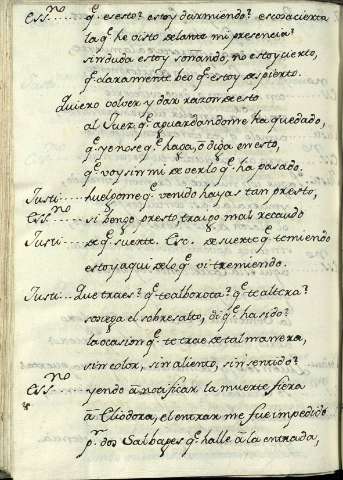 Ess.no.... q.e es esto? estoy durmiendo? es cosa cierta
la q.e he visto delante mi presencia?
sin duda estoy soñando, no estoy cierto,
q.e claramente beo q.e estoy despierto.
Quiero volver y dar razon de esto
al Juez q.e aguardandome ha quedado,
q.e yo no se q.e haga, ò diga en esto,
q.e voy sin mi de verlo q.e ha pasado.
Justi.... huelgome q.e venido hayas tan presto,
Ess.no.... si bengo presto, traigo mal recaudo
Justi..... de q.e suerte. Esc. de suerte q.e temiendo
estoy aqui de lo q.e vi tremiendo.
Justi.... Que traes? q.e te alborota? q.e te altera?
sosiega el sobresalto, di q.e ha sido?
la ocasion q.e te trae de tal manera,
sin color, sin aliento, sin sentido?
Ess.no.... yendo à notificar la muerte fiera
à Eliodora, el entrar me fue impedido
p.r dos Salbages q.e halle à la entrada,